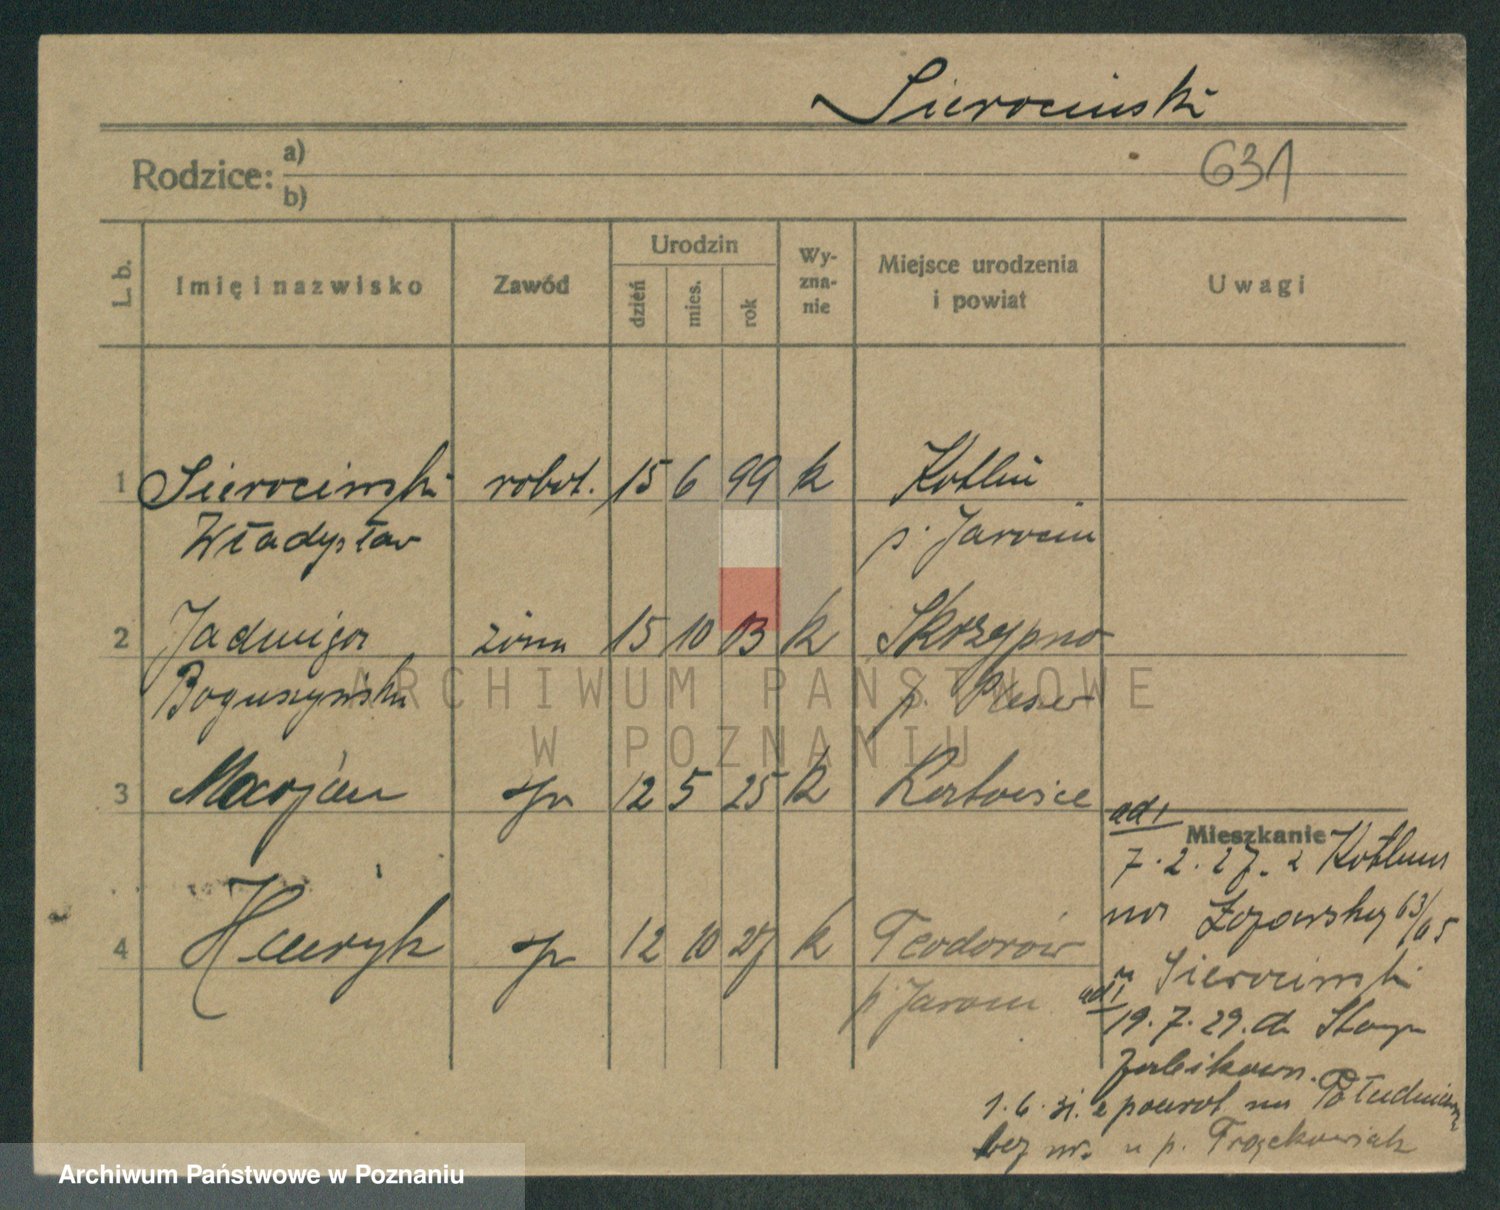 Sierociński
631
Rodzice: a)
b)
L. b.
Imię i nazwisko
Zawód
Urodzin
dzień
mies.
rok
Wy-
zna-
nie
Miejsce urodzenia
i powiat
Uwagi
1 Sierociński robot. 15 6 99 k Kotlin
Władysław p. Jarocin
2 Jadwiga żona 15 10 03 k Skrzypno
Boguszyńska p. Plesew
3 Marjan 12 5 25 k
ad 1
Mieszkanie
7. 2. 27. z Kotlina
na 63/65
4 Henryk 12 10 27 k Teodorów
u Sierociński
p Jarocin
ad 1
19. 7. 29. do
Żabikowo.
1. 6. 31. z powrot na
bez nr. u p. Frąckowiak
ARCHIWUM PAŃSTWOWE
W POZNANIU
Archiwum Państwowe w Poznaniu